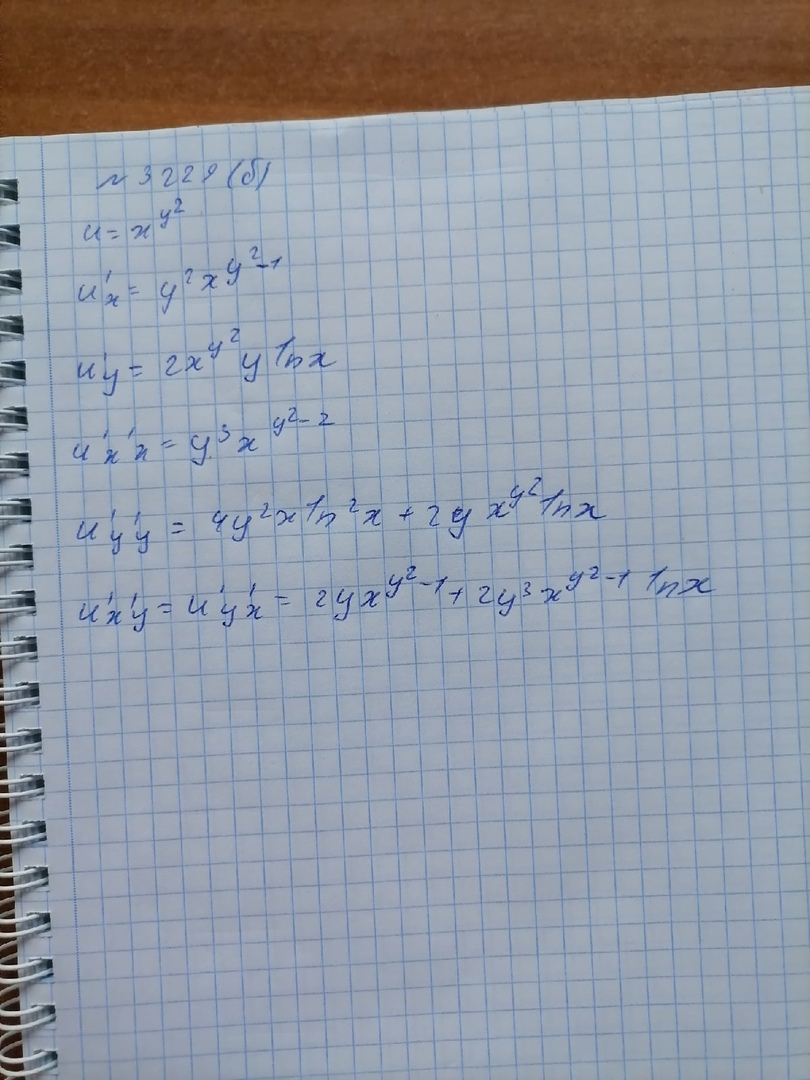 № 3229 (б)
u = x^{y^2}
u'x = y^2 x^{y^2-1}
u'y = 2x^{y^2} y ln x
u'x'x = y^3 x^{y^2-2}
u'y'y = 4y^2 x ln^2 x + 2y x^{y^2} ln x
u'x'y = u'y'x = 2yx^{y^2-1} + 2y^3 x^{y^2-1} ln x